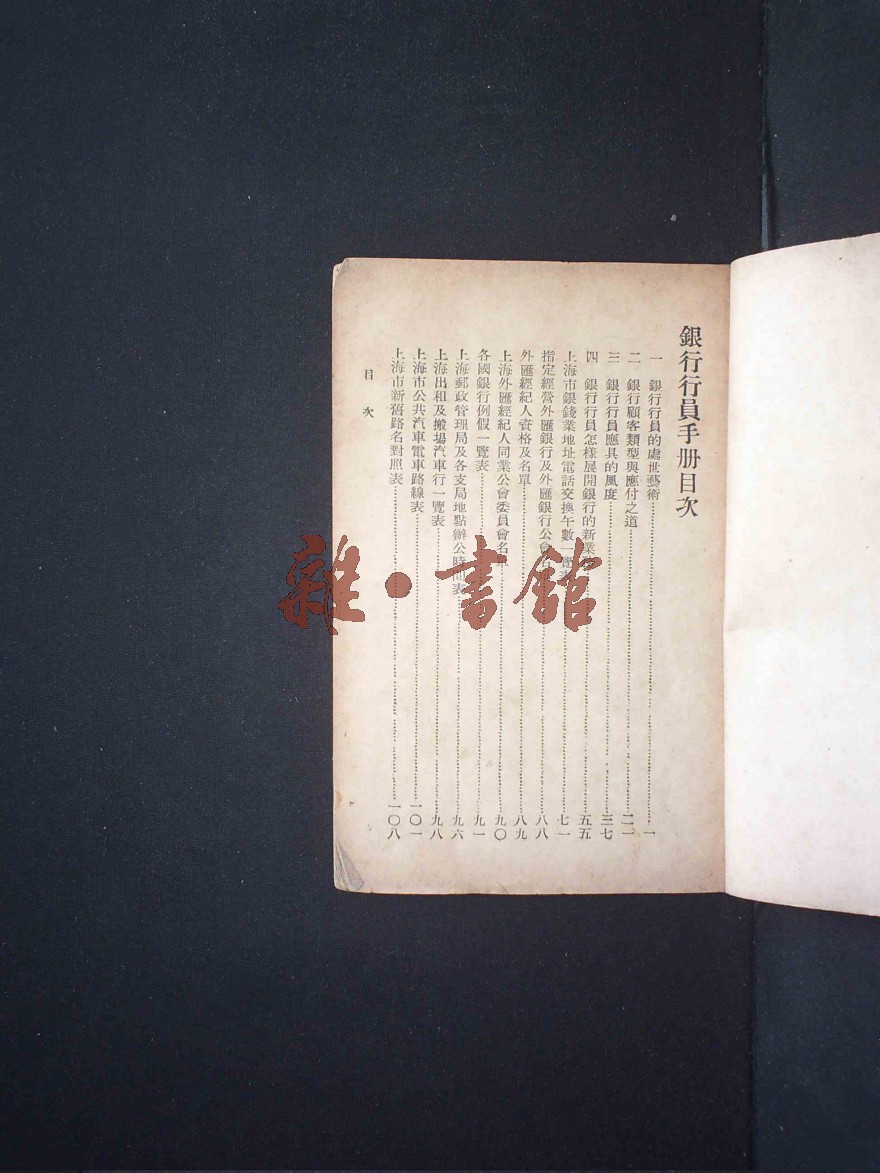 銀行行員手册目次
一　銀行行員的處世藝術…一
二　銀行顧客類型與應付之道…二一
三　銀行行員應具的風度…三七
四　銀行行員怎樣展開銀行的新業…五五
上海市銀錢業地址電話交換午數一覽…七一
指定經營外匯銀行及外匯銀行公會…八八
外匯經紀人資格及名單…八九
上海外匯經紀人同業公會委員會名…九〇
各國銀行例假一覽表…九一
上海郵政管理局及各支局地點辦公時間表…九六
上海出租及搬場汽車行一覽表…九八
上海市公共汽車電車路線表…一〇一
上海市新舊路名對照表…一〇八
目次
雜·書館